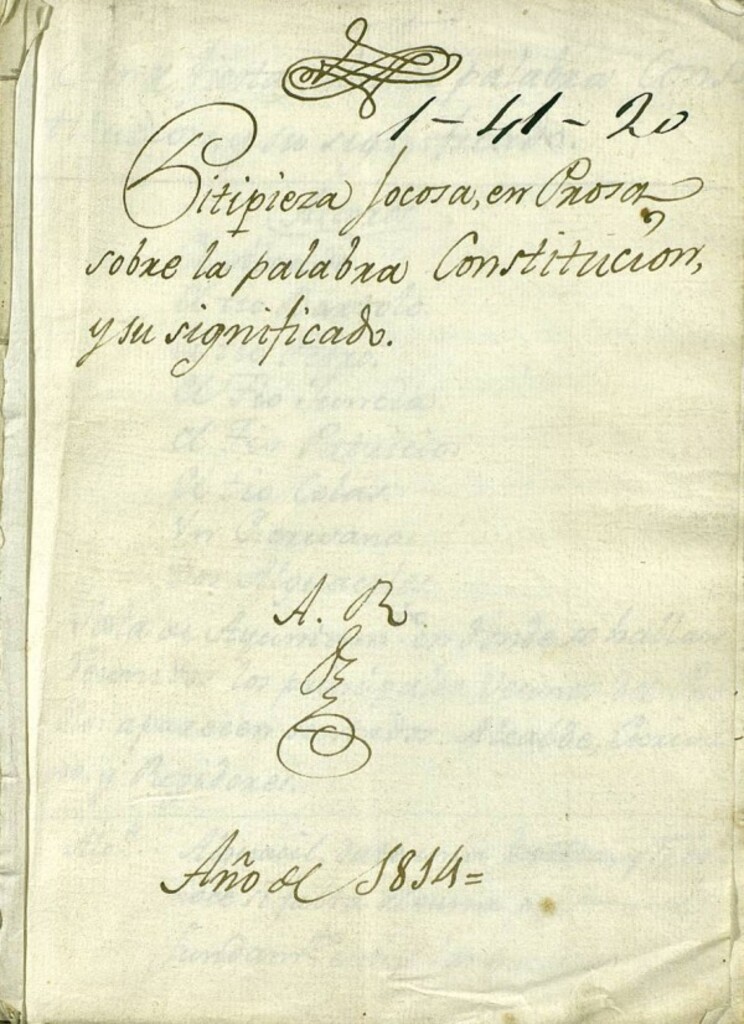 1-41-20
Pitipieza Jocosa, en Prosa
sobre la palabra Constitución,
y su significado.
A. R.
Año de 1814=